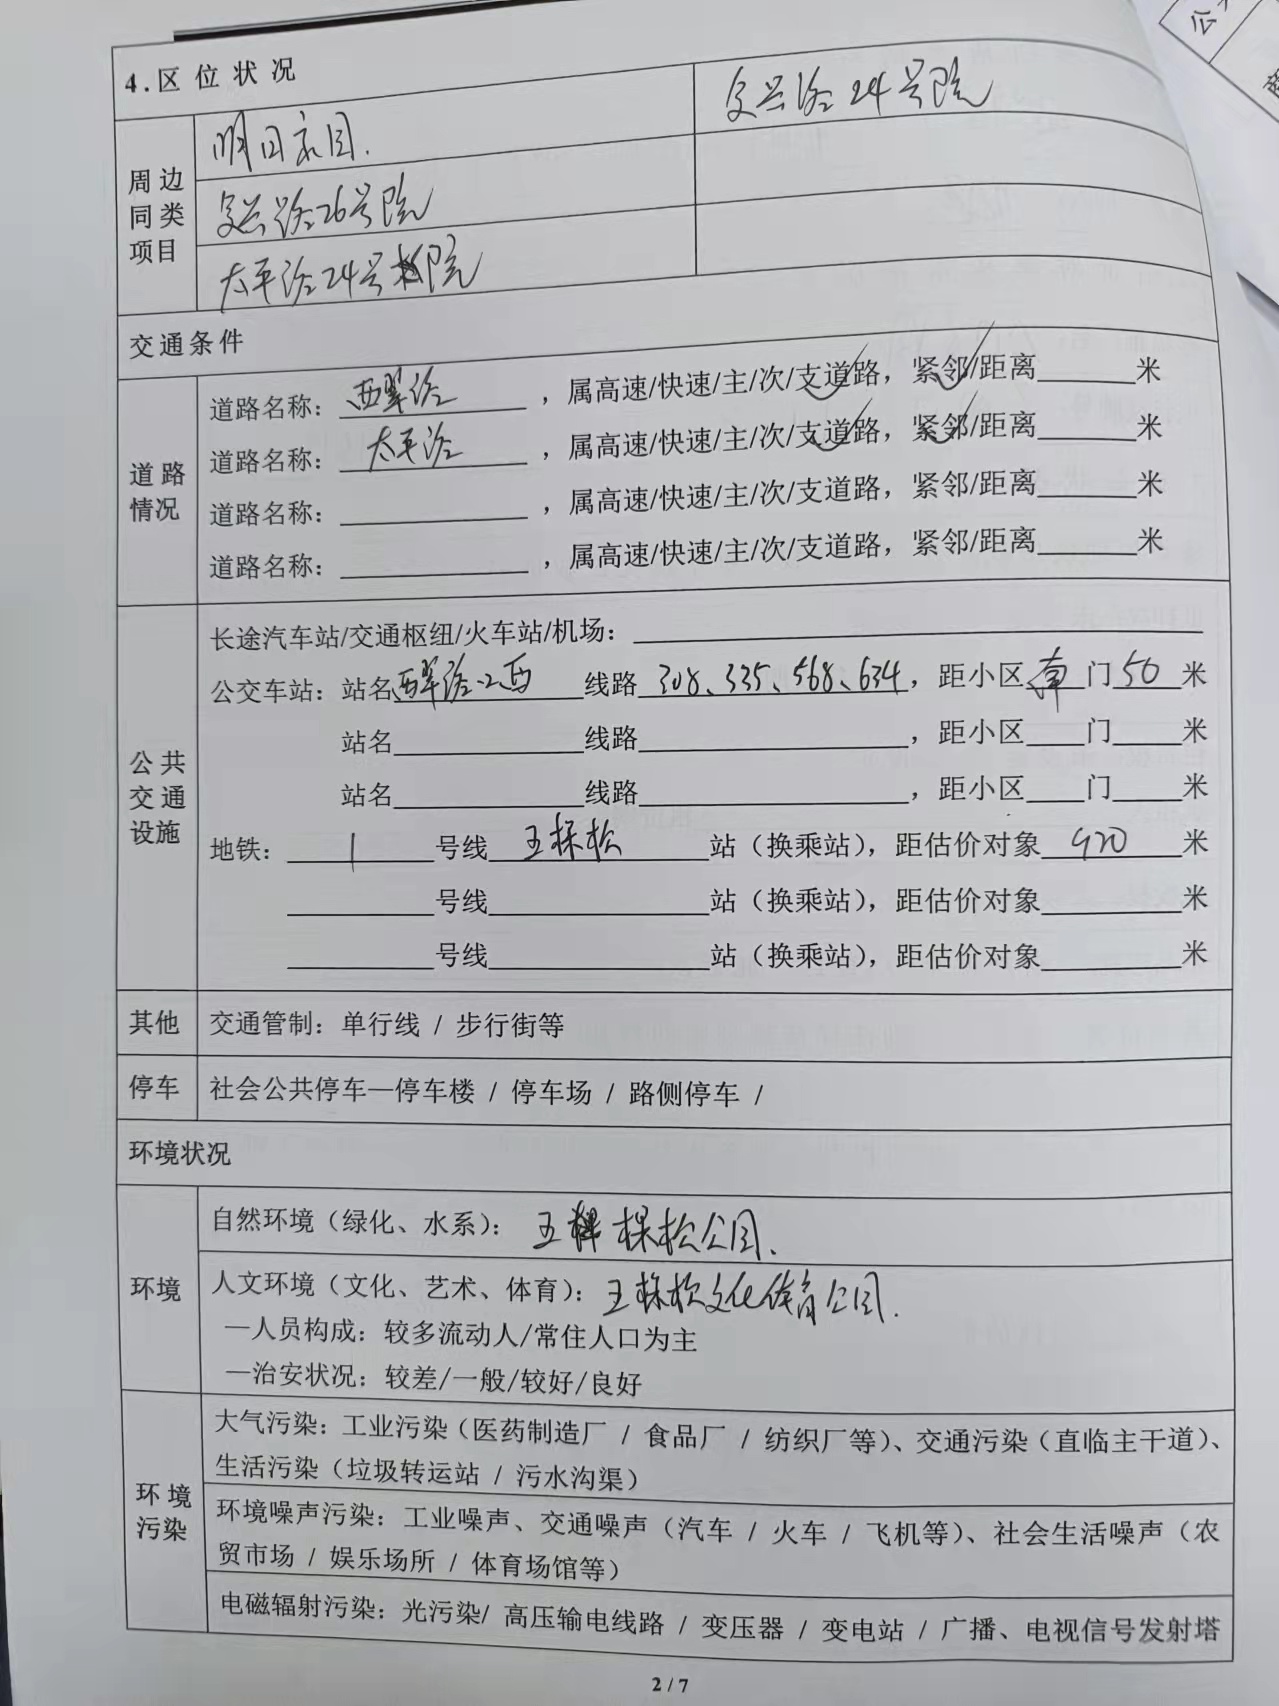 4.区位状况
周边同类项目
明日家园.
复兴路24号院
复兴路26号院
太平路24号院
交通条件
道路情况
道路名称：西翠路，属高速/快速/主/次/支道路，紧邻/距离______米
道路名称：太平路，属高速/快速/主/次/支道路，紧邻/距离______米
道路名称：____________，属高速/快速/主/次/支道路，紧邻/距离______米
道路名称：____________，属高速/快速/主/次/支道路，紧邻/距离______米
公共交通设施
长途汽车站/交通枢纽/火车站/机场：____________
公交车站：站名西翠路口西线路308、335、568、634，距小区南门50米
站名____________线路____________，距小区____门____米
站名____________线路____________，距小区____门____米
地铁：1号线五棵松站（换乘站），距估价对象920米
______号线____________站（换乘站），距估价对象______米
______号线____________站（换乘站），距估价对象______米
其他 交通管制：单行线 / 步行街等
停车 社会公共停车—停车楼 / 停车场 / 路侧停车 /
环境状况
环境
自然环境（绿化、水系）：五棵松公园、
人文环境（文化、艺术、体育）：五棵松文化体育公园.
—人员构成：较多流动人/常住人口为主
—治安状况：较差/一般/较好/良好
环境污染
大气污染：工业污染（医药制造厂 / 食品厂 / 纺织厂等）、交通污染（直临主干道）、
生活污染（垃圾转运站 / 污水沟渠）
环境噪声污染：工业噪声、交通噪声（汽车 / 火车 / 飞机等）、社会生活噪声（农
贸市场 / 娱乐场所 / 体育场馆等）
电磁辐射污染：光污染/ 高压输电线路 / 变压器 / 变电站 / 广播、电视信号发射塔
2 / 7